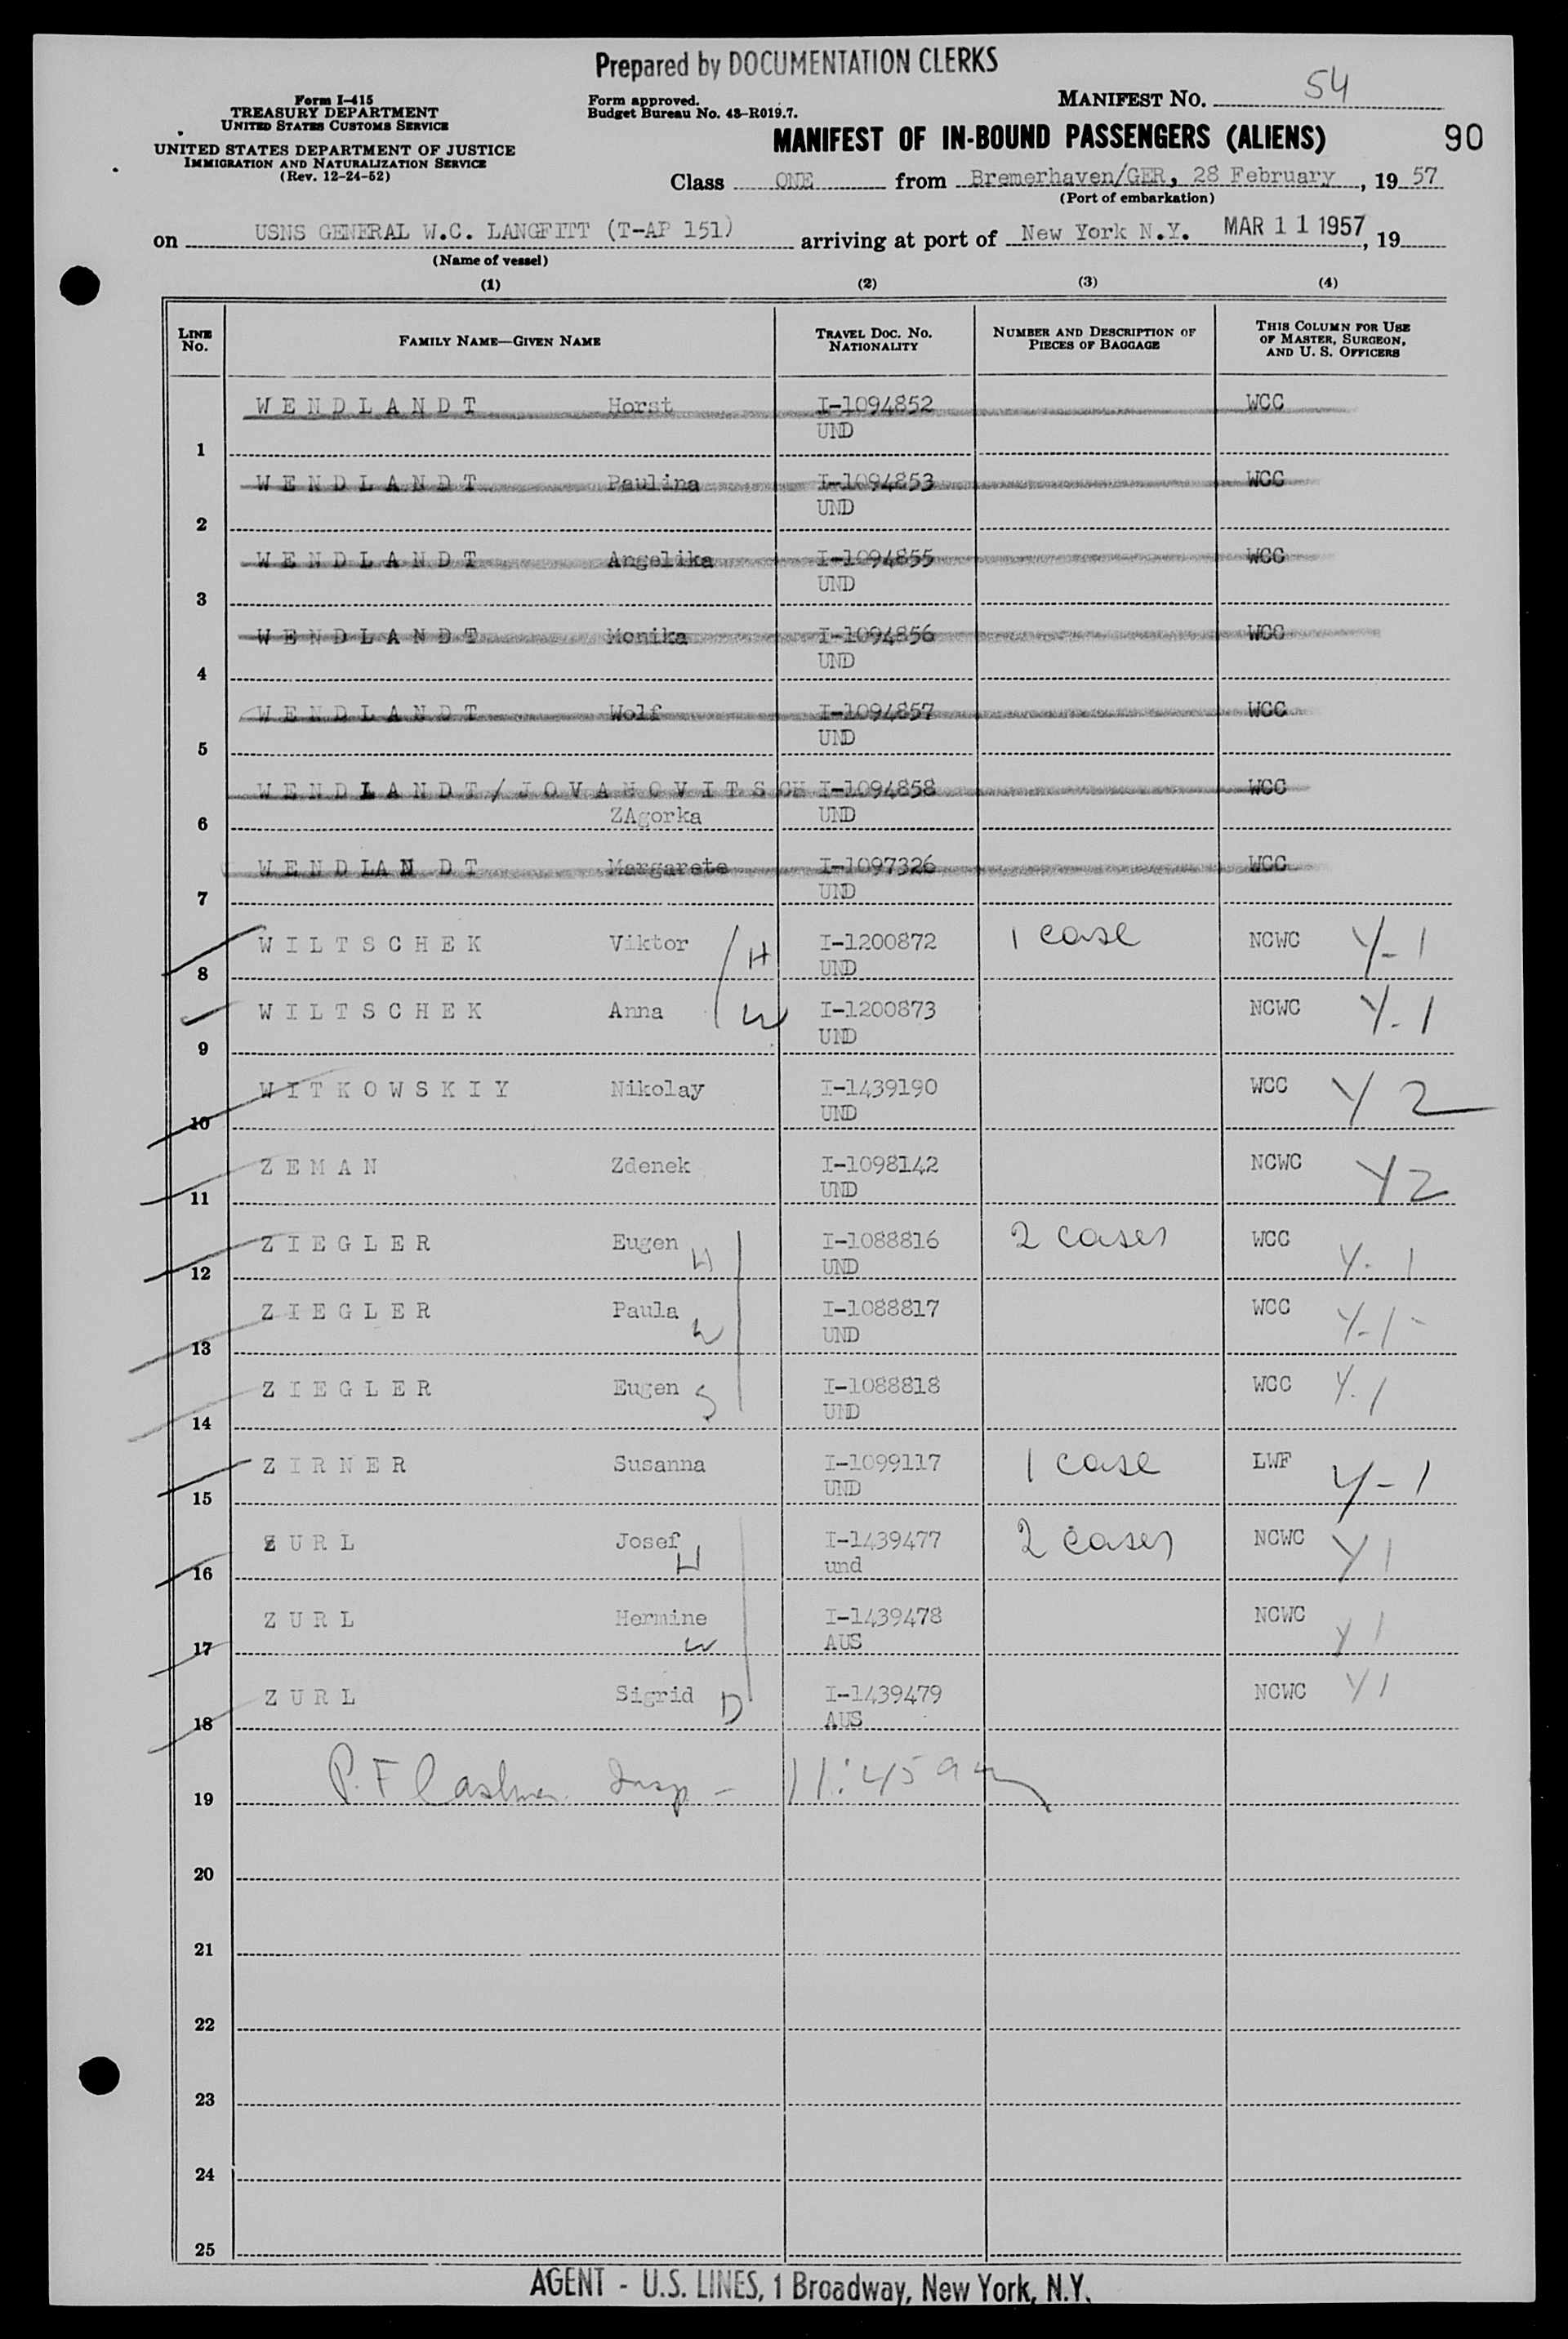 Prepared by DOCUMENTATION CLERKS
Form I-415
TREASURY DEPARTMENT
UNITED STATES CUSTOMS SERVICE
UNITED STATES DEPARTMENT OF JUSTICE
IMMIGRATION AND NATURALIZATION SERVICE
(Rev. 12-24-52)
Form approved.
Budget Bureau No. 43-R019.7.
MANIFEST NO. 54
MANIFEST OF IN-BOUND PASSENGERS (ALIENS) 90
Class ONE from Bremerhaven/GER, 28 February, 1957
(Port of embarkation)
on USNS GENERAL W.C. LANGFITT (T-AP 151) arriving at port of New York N.Y. MAR 11 1957, 19
(Name of vessel)
(1) (2) (3) (4)
LINE NO. FAMILY NAME—GIVEN NAME TRAVEL DOC. NO. NATIONALITY NUMBER AND DESCRIPTION OF PIECES OF BAGGAGE THIS COLUMN FOR USE OF MASTER, SURGEON, AND U. S. OFFICERS
WENDLANDT Horst I-1094852 WCC
1 UND
WENDLANDT Paulina I-1094853 WCC
2 UND
WENDLANDT Angelika I-1094855 WCC
3 UND
WENDLANDT Monika I-1094856 WCC
4 UND
WENDLANDT Wolf I-1094857 WCC
5 UND
WENDLANDT/JOVANOVITSCH I-1094858 WCC
6 ZAgorka UND
WENDLANDT Margarete I-1097326 WCC
7 UND
WILTSCHEK Viktor H I-1200872 1 case NCWC Y-1
8 UND
WILTSCHEK Anna W I-1200873 NCWC Y-1
9 UND
WITKOWSKIY Nikolay I-1439190 WCC Y 2
10 UND
ZEMAN Zdenek I-1098142 NCWC Y 2
11 UND
ZIEGLER Eugen H I-1088816 2 cases WCC Y-1
12 UND
ZIEGLER Paula W I-1088817 WCC Y-1
13 UND
ZIEGLER Eugen S I-1088818 WCC Y-1
14 UND
ZIRNER Susanna I-1099117 1 case LWF Y-1
15 UND
ZURL Josef H I-1439477 2 cases NCWC Y 1
16 und
ZURL Hermine W I-1439478 NCWC Y 1
17 AUS
ZURL Sigrid D I-1439479 NCWC Y 1
18 AUS
19 P. F Insp - 11:45 am
20
21
22
23
24
25
AGENT - U.S. LINES, 1 Broadway, New York, N.Y.